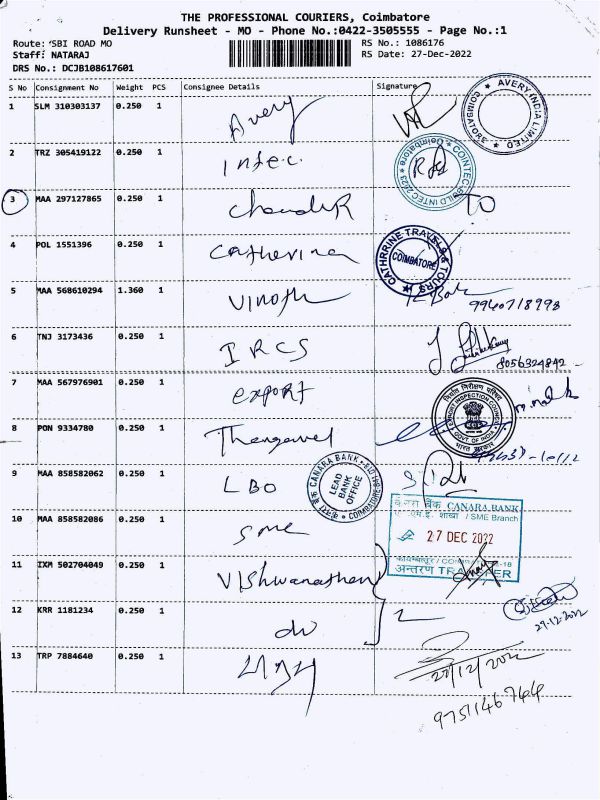 THE PROFESSIONAL COURIERS, Coimbatore
Delivery Runsheet - MO - Phone No.:0422-3505555 - Page No.:1
Route: SBI ROAD MO
RS No.: 1086176
Staff: NATARAJ
RS Date: 27-Dec-2022
DRS No.: DCJB108617601
S No Consignment No Weight PCS Consignee Details Signature
1 SLM 310303137 0.250 1 Avery
AVERY INDIA LIMITED COIMBATORE
2 TRZ 305419122 0.250 1 Intec.
COINTEC BUILD INTEC 2023 Coimbatore
3 MAA 297127865 0.250 1 ChandeR TO
4 POL 1551396 0.250 1 Catherina
CATHRRINE TRAVELS & TOURS COIMBATORE
5 MAA 568610294 1.360 1 Vinoth
9940718998
6 TNJ 3173436 0.250 1 IRCS
8056324842
7 MAA 567976901 0.250 1 export
निर्यात निरीक्षण परिषद EXPORT INSPECTION COUNCIL GOVT. OF INDIA भारत सरकार
8 PON 9334780 0.250 1 Thangavel
9 MAA 858582062 0.250 1 LBO
CANARA BANK LEAD BANK OFFICE COIMBATORE
10 MAA 858582086 0.250 1 SME
केनरा बैंक CANARA BANK
शाखा / SME Branch
27 DEC 2022
अन्तरण TRANSFER
11 IXM 502704049 0.250 1 Vishwanathan
12 KRR 1181234 0.250 1 do 2
29-12-2022
13 TRP 7884640 0.250 1
29/12/2022
9751146744